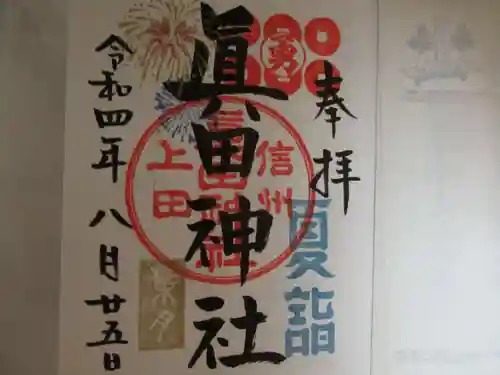 奉拝
勇
夏詣
眞田神社
信州
上田
眞田神社
葉月
令和四年八月廿五日